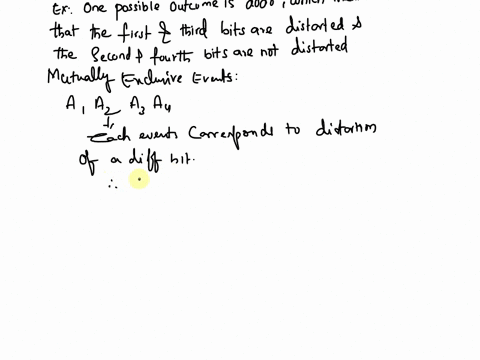 Ex. One possible outcome is
that the first & third bits are distorted &
the second & fourth bits are not distorted
Mutually Exclusive Events:
A1 A2 A3 A4
Each events corresponds to distortion
of a diff bit.
∴